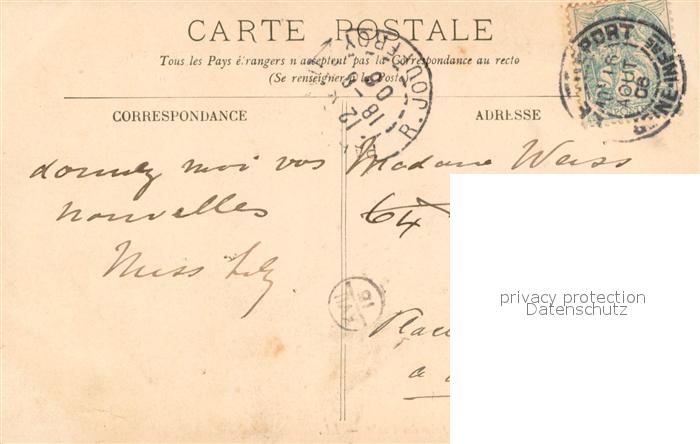 CARTE POSTALE
Tous les Pays étrangers n'acceptent pas la Correspondance au recto
(Se renseigner à la Poste)
CORRESPONDANCE
ADRESSE
donnez moi vos
nouvelles
Miss Lily
Madame Weiss
64
Place
a
R. JOUFFROY
12
18-8
06
PORT
SEINE
16
AOUT
06
privacy protection
Datenschutz